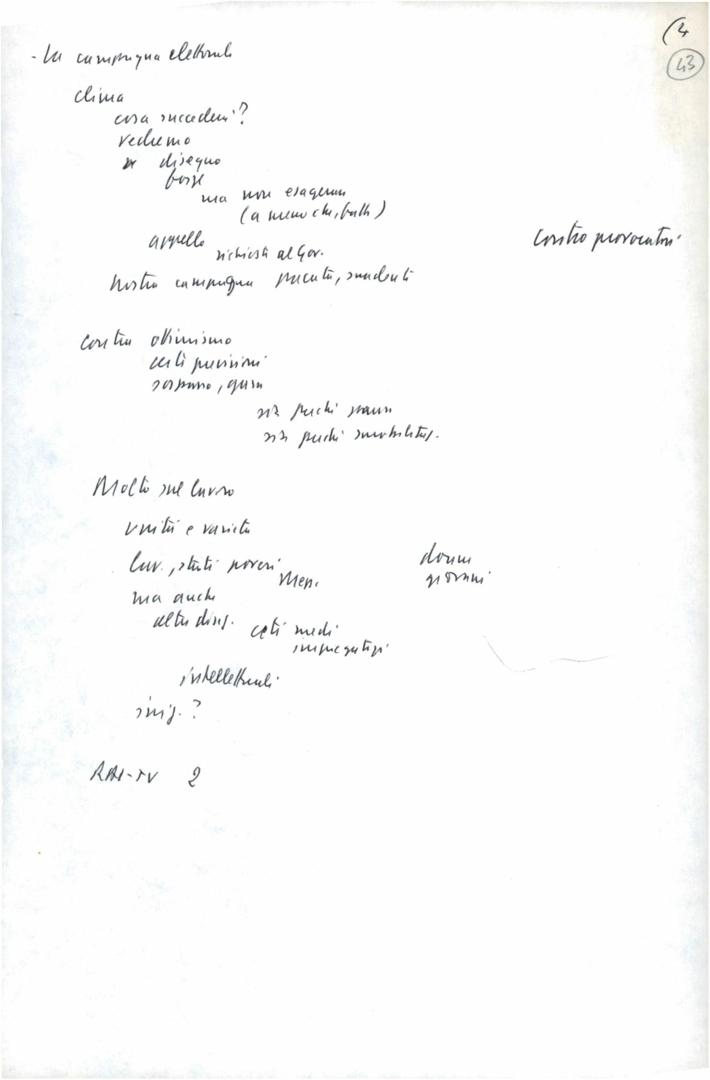 (4
43
- La campagna elettorale
clima
cosa succederà?
vedremo
disegno
forse
ma non esagerare
(a meno che,
appello
richieste al Gov.
Contro provocatori
Nostra campagna pacata, suadente
Contro ottimismo
certe previsioni
sia perché
sia perché smobilita.
Molto sul lavoro
unità e varietà
lav., strati poveri
Mezz.
donne
giovani
ma anche
altre
ceti medi
impiegatizi
intellettuali
RAI-TV 2